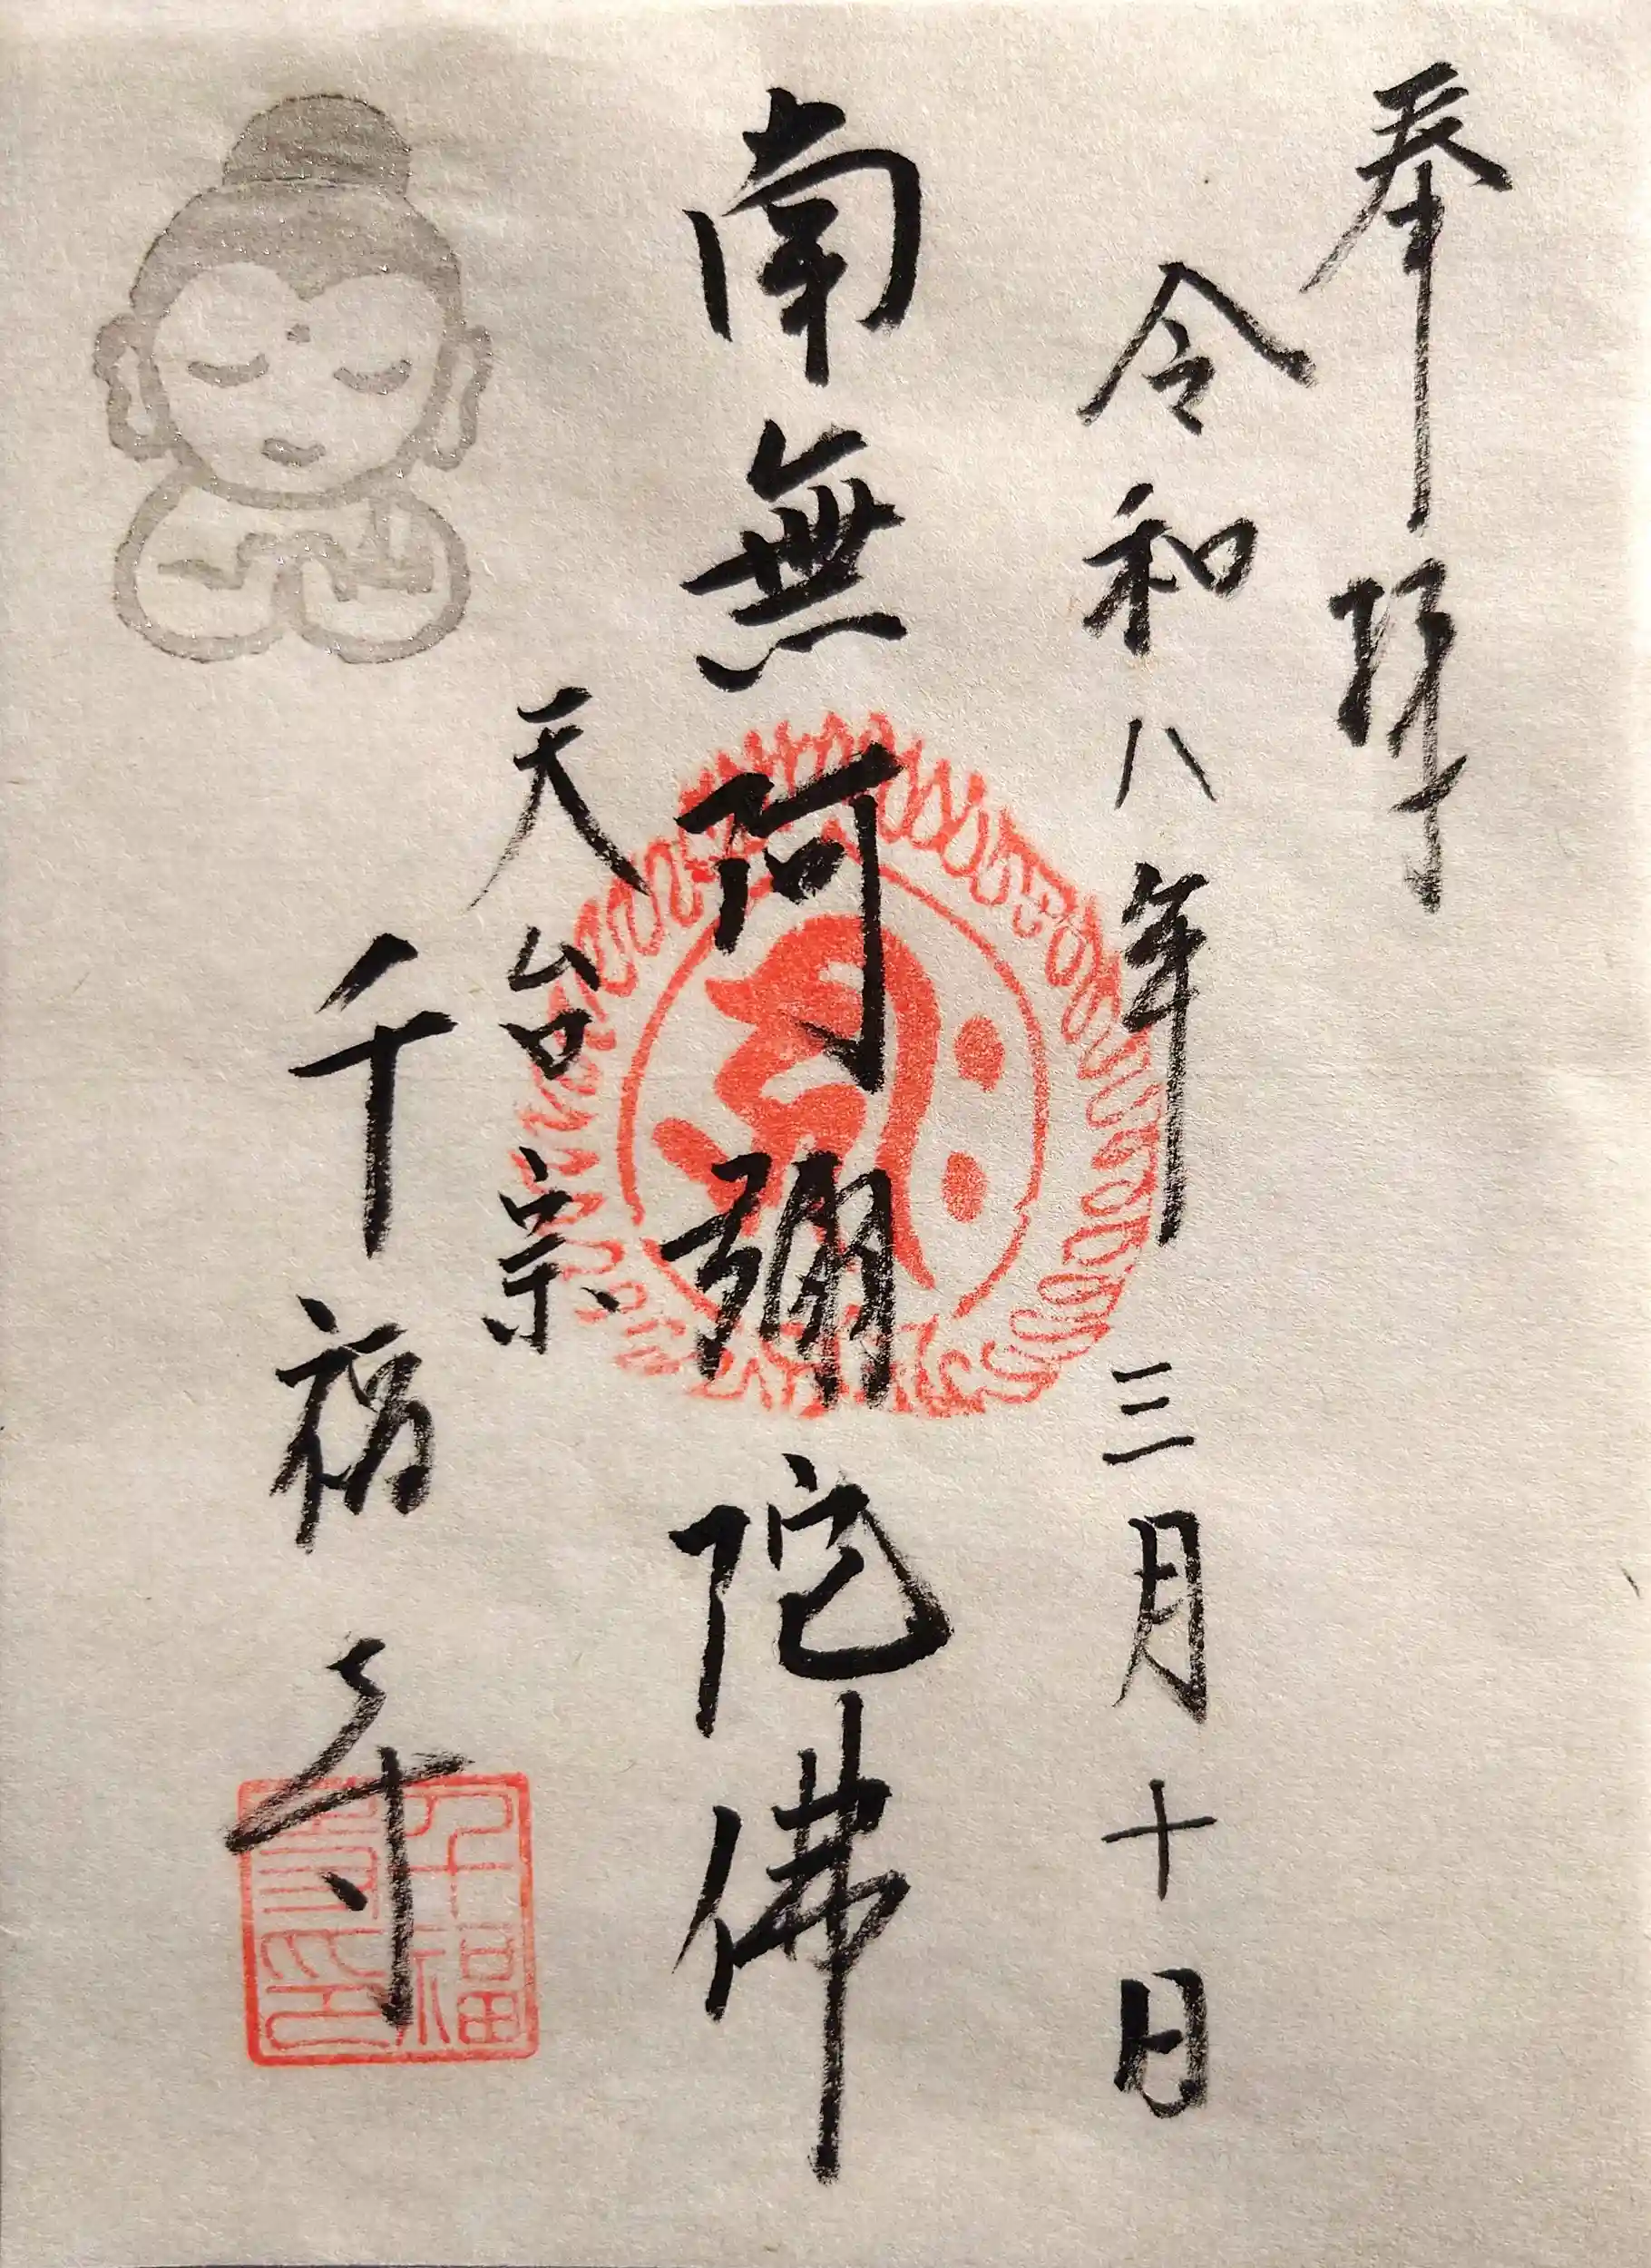 奉拝
令和八年三月十日
南無阿彌陀佛
天台宗
千福寺
千福
寺印